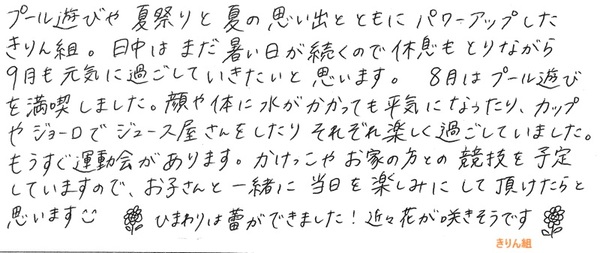 プール遊びや夏祭りと夏の思い出とともにパワーアップした
きりん組。日中はまだ暑い日が続くので休息もとりながら
9月も元気に過ごしていきたいと思います。 8月はプール遊び
を満喫しました。顔や体に水がかかっても平気になったり、カップ
やジョーロでジュース屋さんをしたりそれぞれ楽しく過ごしていました。
もうすぐ運動会があります。かけっこやお家の方との競技を予定
していますので、お子さんと一緒に当日を楽しみにして頂けたらと
思います☺ ひまわりは蕾ができました!近々花が咲きそうです
きりん組